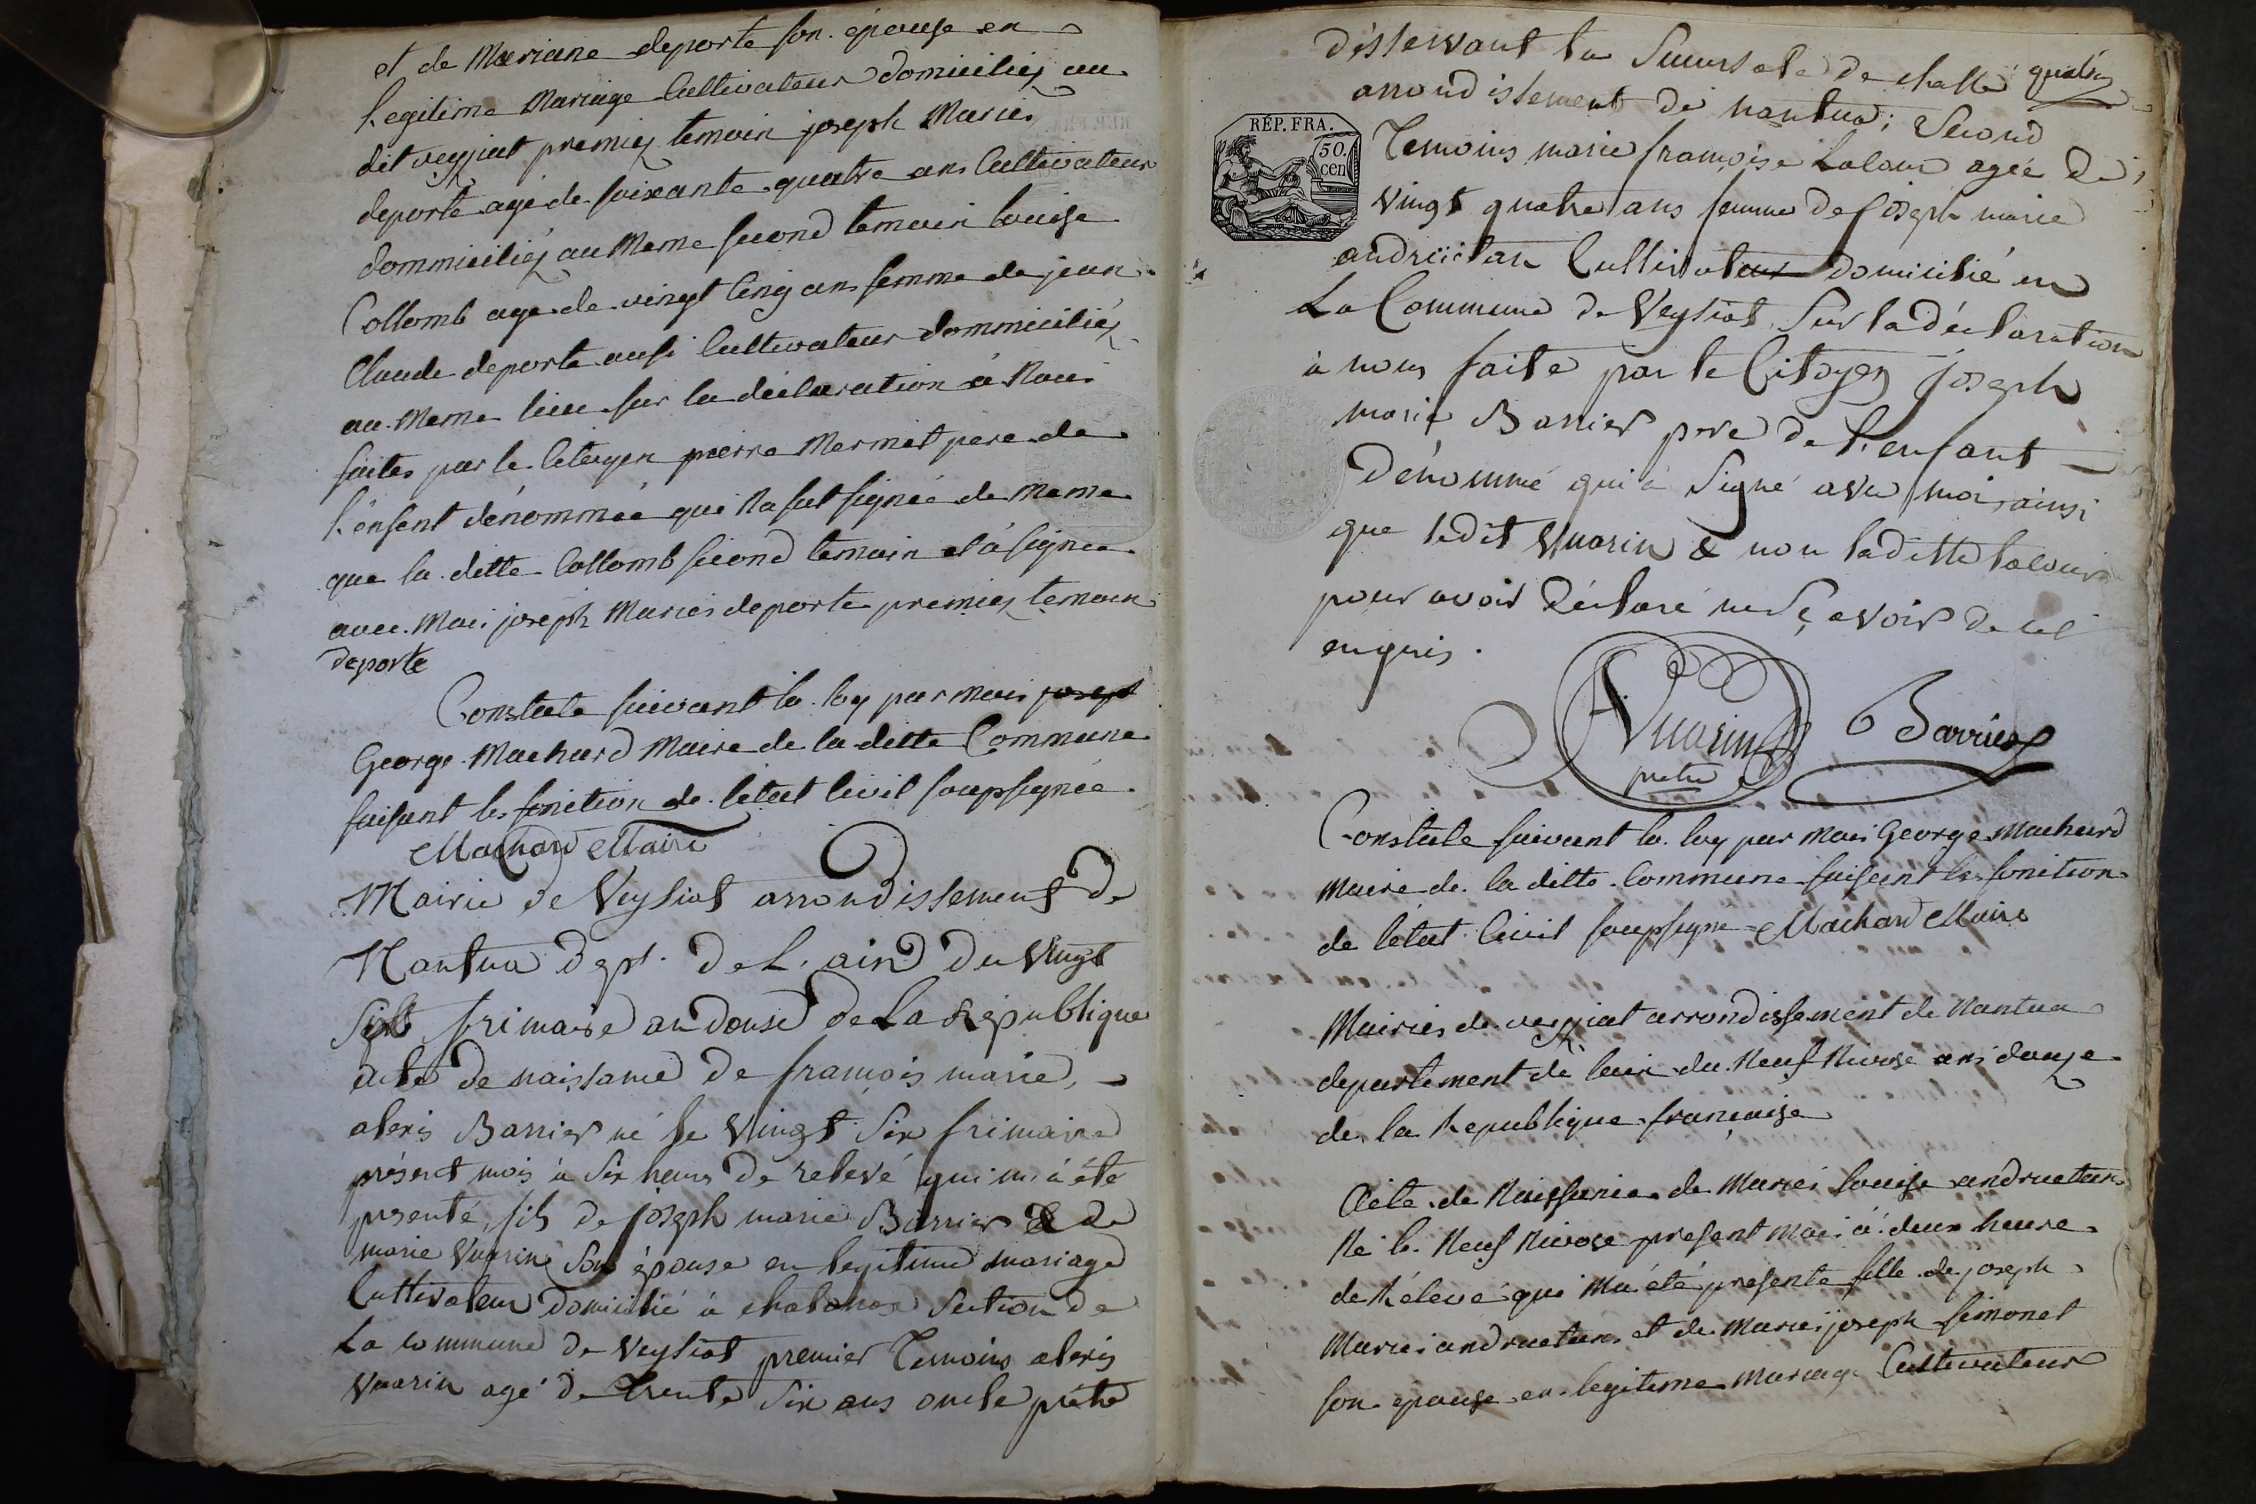 et de Mariane deporte son épouse en
legitime Mariage Cultivateur domiciliez au
dit veyziat premiez temoin joseph Marie
deporte agé de soixante quatre ans Cultivateur
dommiciliez au Meme second temoin louise
Collomb age de vingt cinq ans femme de jean
Claude deporte ausi Cultivateur dommiciliéz
au Meme lieu sur la déclaration à Nous
faites par le Citoyen pierre Mermet pere de
l'énfent dénommée qui Na sut signée de Meme
que la ditte Collomb second temoin et à signée
avec Moi joseph Marie deporte premiez temoin
deporte
Constate suivant la loy par Moi josept
George Machard Maire de la ditte Commune
faisant les fonction de l'état Civil soupsignée
Machard Maire
Mairie de Veysiat arrondissement de
Nantua dept. de L'ain du Vingt
sept frimaire an douse de La République
acte de naissance de francois marie
alexis Barrier né le Vingt six frimaire
présent mois à six heurs de relevé qui m'a été
présenté, fils de joseph marie Barrier & de
marie Vuarin son épouse en legitime mariage
Cultivateur domicilié à chatonax Section de
La commune de Veysiat premier Temoins alexis
Vuarin agé de Trente six ans oncle prêtre
désservant la Succursale de
arrondissement de nantua; Second
Temoins marie françoise Lalour agée de
Vingt quatre ans femme de joseph marie
Cultivateur domicilié en
La Commune de Veysiat, Sur la déclaration
à nous faite par le Citoyen joseph
marie Barrier pere de l'enfant
dénommé qui à Signé avec moi, ainsi
que ledit Vuarin & non laditte lalour
pour avoir déclaré ne Sçavoir de cel
enquis.
RÉP. FRA.
50.
cen
Vuarin
pretre
Barrier
Constate suivant la loy par Moi George Machard
Maire de la ditte Commune faisant les fonction
de l'état Civil soupsigne Machard Maire
Mairie de veyziat arrondissement de Nantua
departement de lain du Neuf Nivose ans douze
de la Republique française
Acte de Naissance de Marie louise andruetan
Né le Neuf Nivose present Mois à deux heure
de Rélevé qui Ma été presente fille de joseph
Marie andruetan et de Marie joseph simonet
son epouse en legitime Mariage Cultivateur